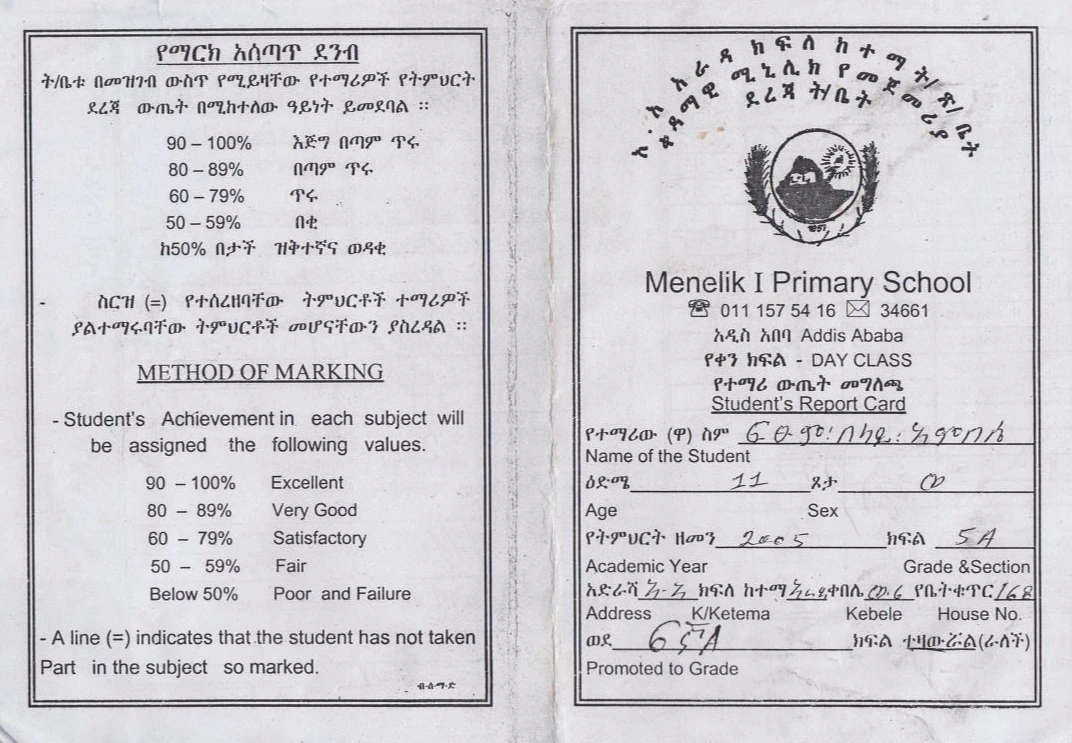 የማርክ አሰጣጥ ደንብ
ት/ቤቱ በመዝገብ ውስጥ የሚይዛቸው የተማሪዎች የትምህርት
ደረጃ ውጤት በሚከተለው ዓይነት ይመደባል ፡፡
90 – 100% እጅግ በጣም ጥሩ
80 – 89% በጣም ጥሩ
60 – 79% ጥሩ
50 – 59% በቂ
ከ50% በታች ዝቅተኛና ወዳቂ
- ስርዝ (=) የተሰረዘባቸው ትምህርቶች ተማሪዎች
ያልተማሩባቸው ትምህርቶች መሆናቸውን ያስረዳል ፡፡
METHOD OF MARKING
- Student's Achievement in each subject will
be assigned the following values.
90 – 100% Excellent
80 – 89% Very Good
60 – 79% Satisfactory
50 – 59% Fair
Below 50% Poor and Failure
- A line (=) indicates that the student has not taken
Part in the subject so marked.
ብ·ሰ·ማ·ድ
አ.አ አራዳ ክፍለ ከተማ ት/ጽ/ቤት
ቀዳማዊ ሚኒሊክ የመጀመሪያ
ደረጃ ት/ቤት
Menelik I Primary School
☎ 011 157 54 16 ✉ 34661
አዲስ አበባ Addis Ababa
የቀን ክፍል - DAY CLASS
የተማሪ ውጤት መግለጫ
Student's Report Card
የተማሪው (ዋ) ስም
Name of the Student
ዕድሜ 11 ጾታ ወ
Age Sex
የትምህርት ዘመን 2005 ክፍል 5A
Academic Year Grade &Section
አድራሻ አ-አ ክፍለ ከተማ አራዳ ቀበሌ የቤት ቁጥር 168
Address K/Ketema Kebele House No.
ወደ 6ኛA ክፍል ተዛውሯል(ራለች)
Promoted to Grade